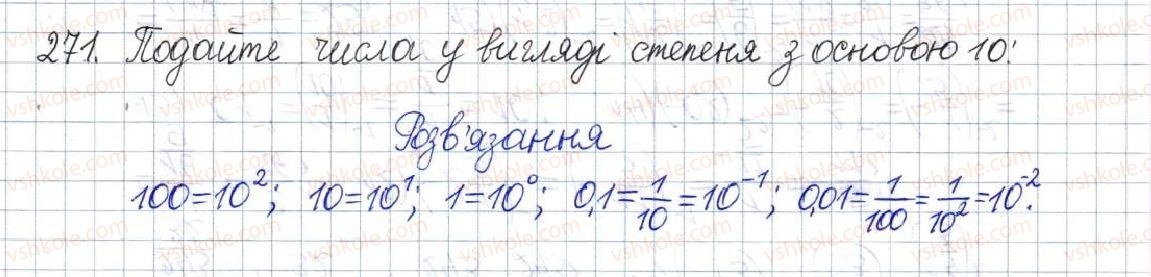 271. Подайте числа у вигляді степеня з основою 10:
Розв'язання
100=10²; 10=10¹; 1=10⁰; 0,1=1/10=10⁻¹; 0,01=1/100=1/10²=10⁻².